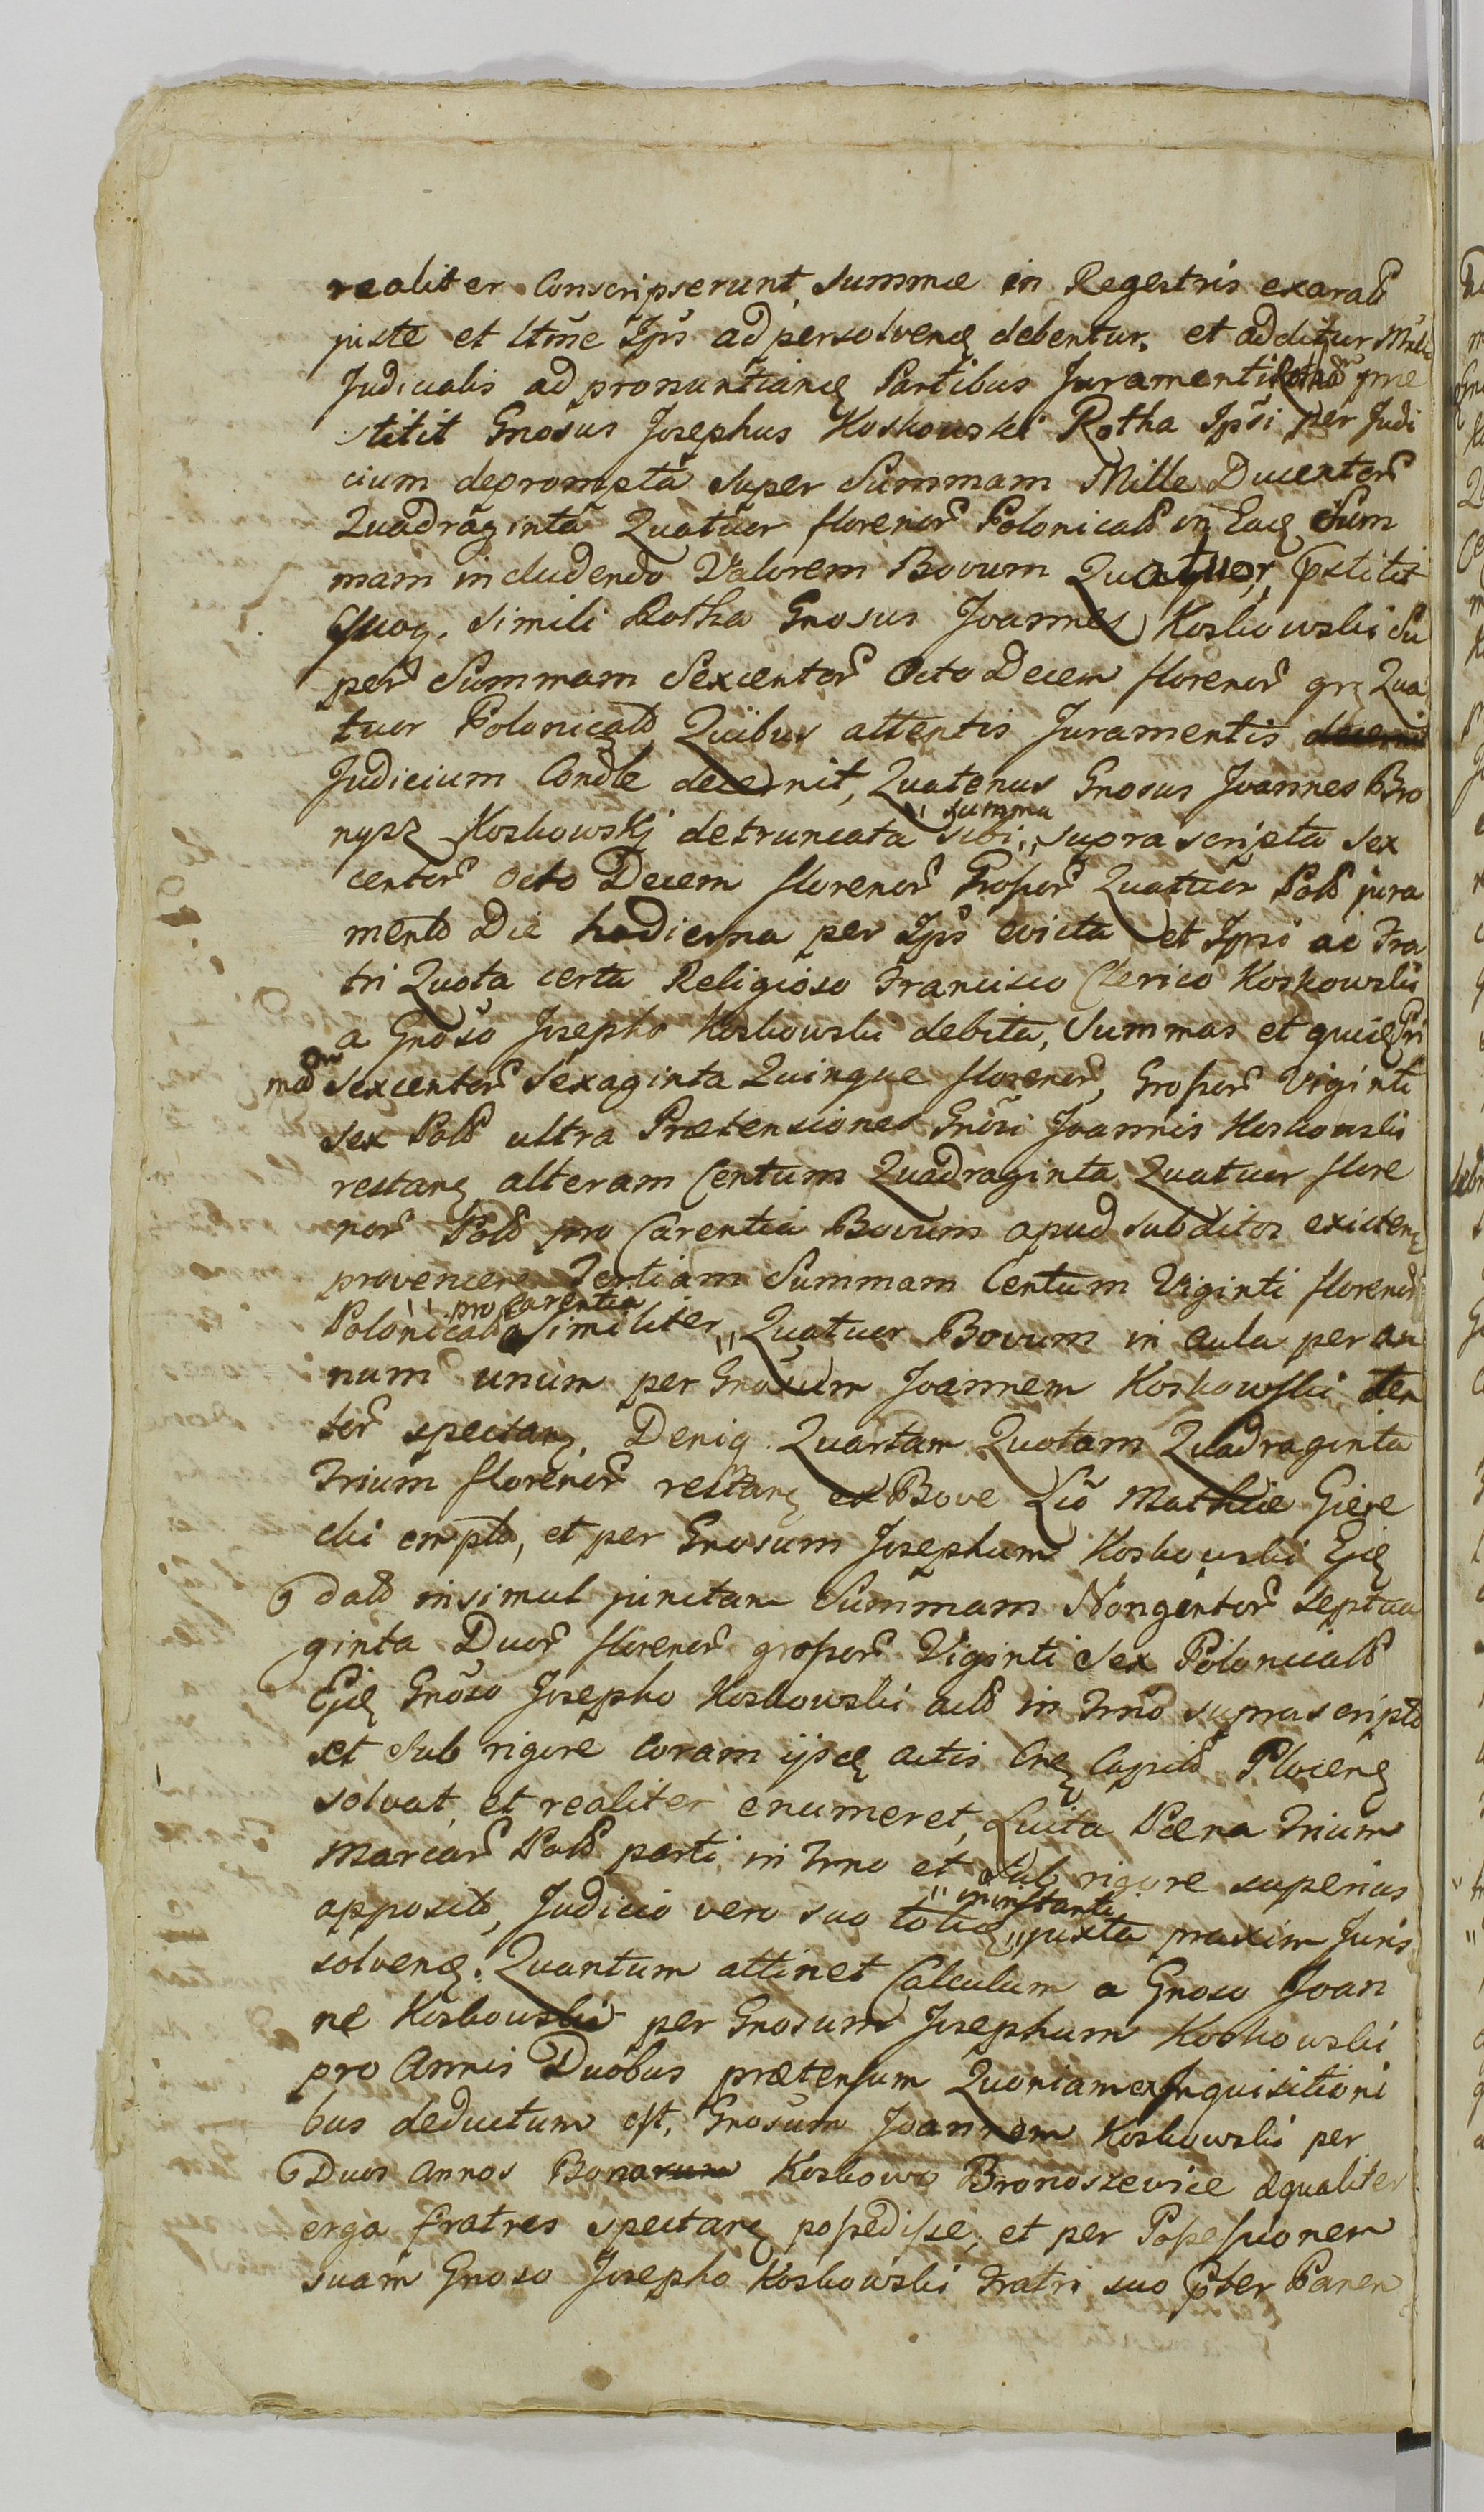 realiter Conscripserunt, Summæ in Regestris exarab
juste et ltme Ips ad persolvenḍ debentur. et additur Mnla
Judicialis ad pronuntianḍ Partibus Juramenti Rotha præ
stitit Gnosus Josephus Koskowski Rotha Ipsi per Judi
cium deprompta super Summam Mille Ducentor
Quadraginta Quatuor florenor Polonicalb in Eaḍ Sum
mam includendo Valorem Bovum Quatuor, Pstitit
Quoq. simili Rotha Gnosus Joannes Koskowski Su
per Summam Sexcentor Octo Decem florenor grz Qua
tuor Polonicalb Quibus attentis Juramentis
Judicium Condle decernit, Quatenus Gnosus Joannes Bro
nysz Koskowskj detruncata sibi „ summa „ supra scripta Sex
centor Octo Decem florenor Grossor Quatuor Polb jura
mento Die hodierna per Ips evicta et Ipsi ac Fra
tri Quota certa Religioso Francisco Clerico Koskowski
a Gnoso Josepho Koskowski debita, Summas et quiḍ Pri
mam Sexcentor Sexaginta Quinque florenor, Grossor Viginti
Sex Polb ultra Prætensiones Gnosi Joannis Koskowski
restanḍ, alteram Centum Quadraginta Quatuor flore
nor Polb pro Carentia Bovum apud subditos existenḍ
provenien Tertiam Summam Centum Viginti florenor
Polonicalb Similiter „ pro carentia „ Quatuor Bovum in Aula per an
num unum per Gnosum Joannem Koskowski ten
tor spectanḍ. Deniq Quartam Quotam Quadraginta
Trium florenor restanḍ ex Bove Lio Mathiæ Giere
cki empto, et per Gnosum Josephum Koskowski Ejḍ
dato insimul junctam Summam Nongentor Septua
ginta Duor florenor grossor Viginti Sex Polonicalb
Ejḍ Gnoso Josepho Koskowski acto in Trno suprascripto
et Sub rigore Coram ijsḍ actis Cnḍ Capitb Plocenḍ
solvat, et realiter enumeret, Luita Pæna Trium
Marcar Polb parti in Trno et Sub rigore superius
apposito, Judicio vero suo totiḍ „ in instanti „ juxta praxim Juris
solvenḍ. Quantum attinet Calculum a Gnoso Joan
ne Koskowski per Gnosum Josephum Koskowski
pro Annis Duobus prætensum Quoniam ex Inquisitioni
bus deductum est, Gnosum Joannem Koskowski per
Duos Annos Bonarum Koskowo Bronoszewice æqualiter
erga fratres spectanḍ possedisse, et per Possessionem
suam Gnoso Josepho Koskowski Fratri suo Pter Paren